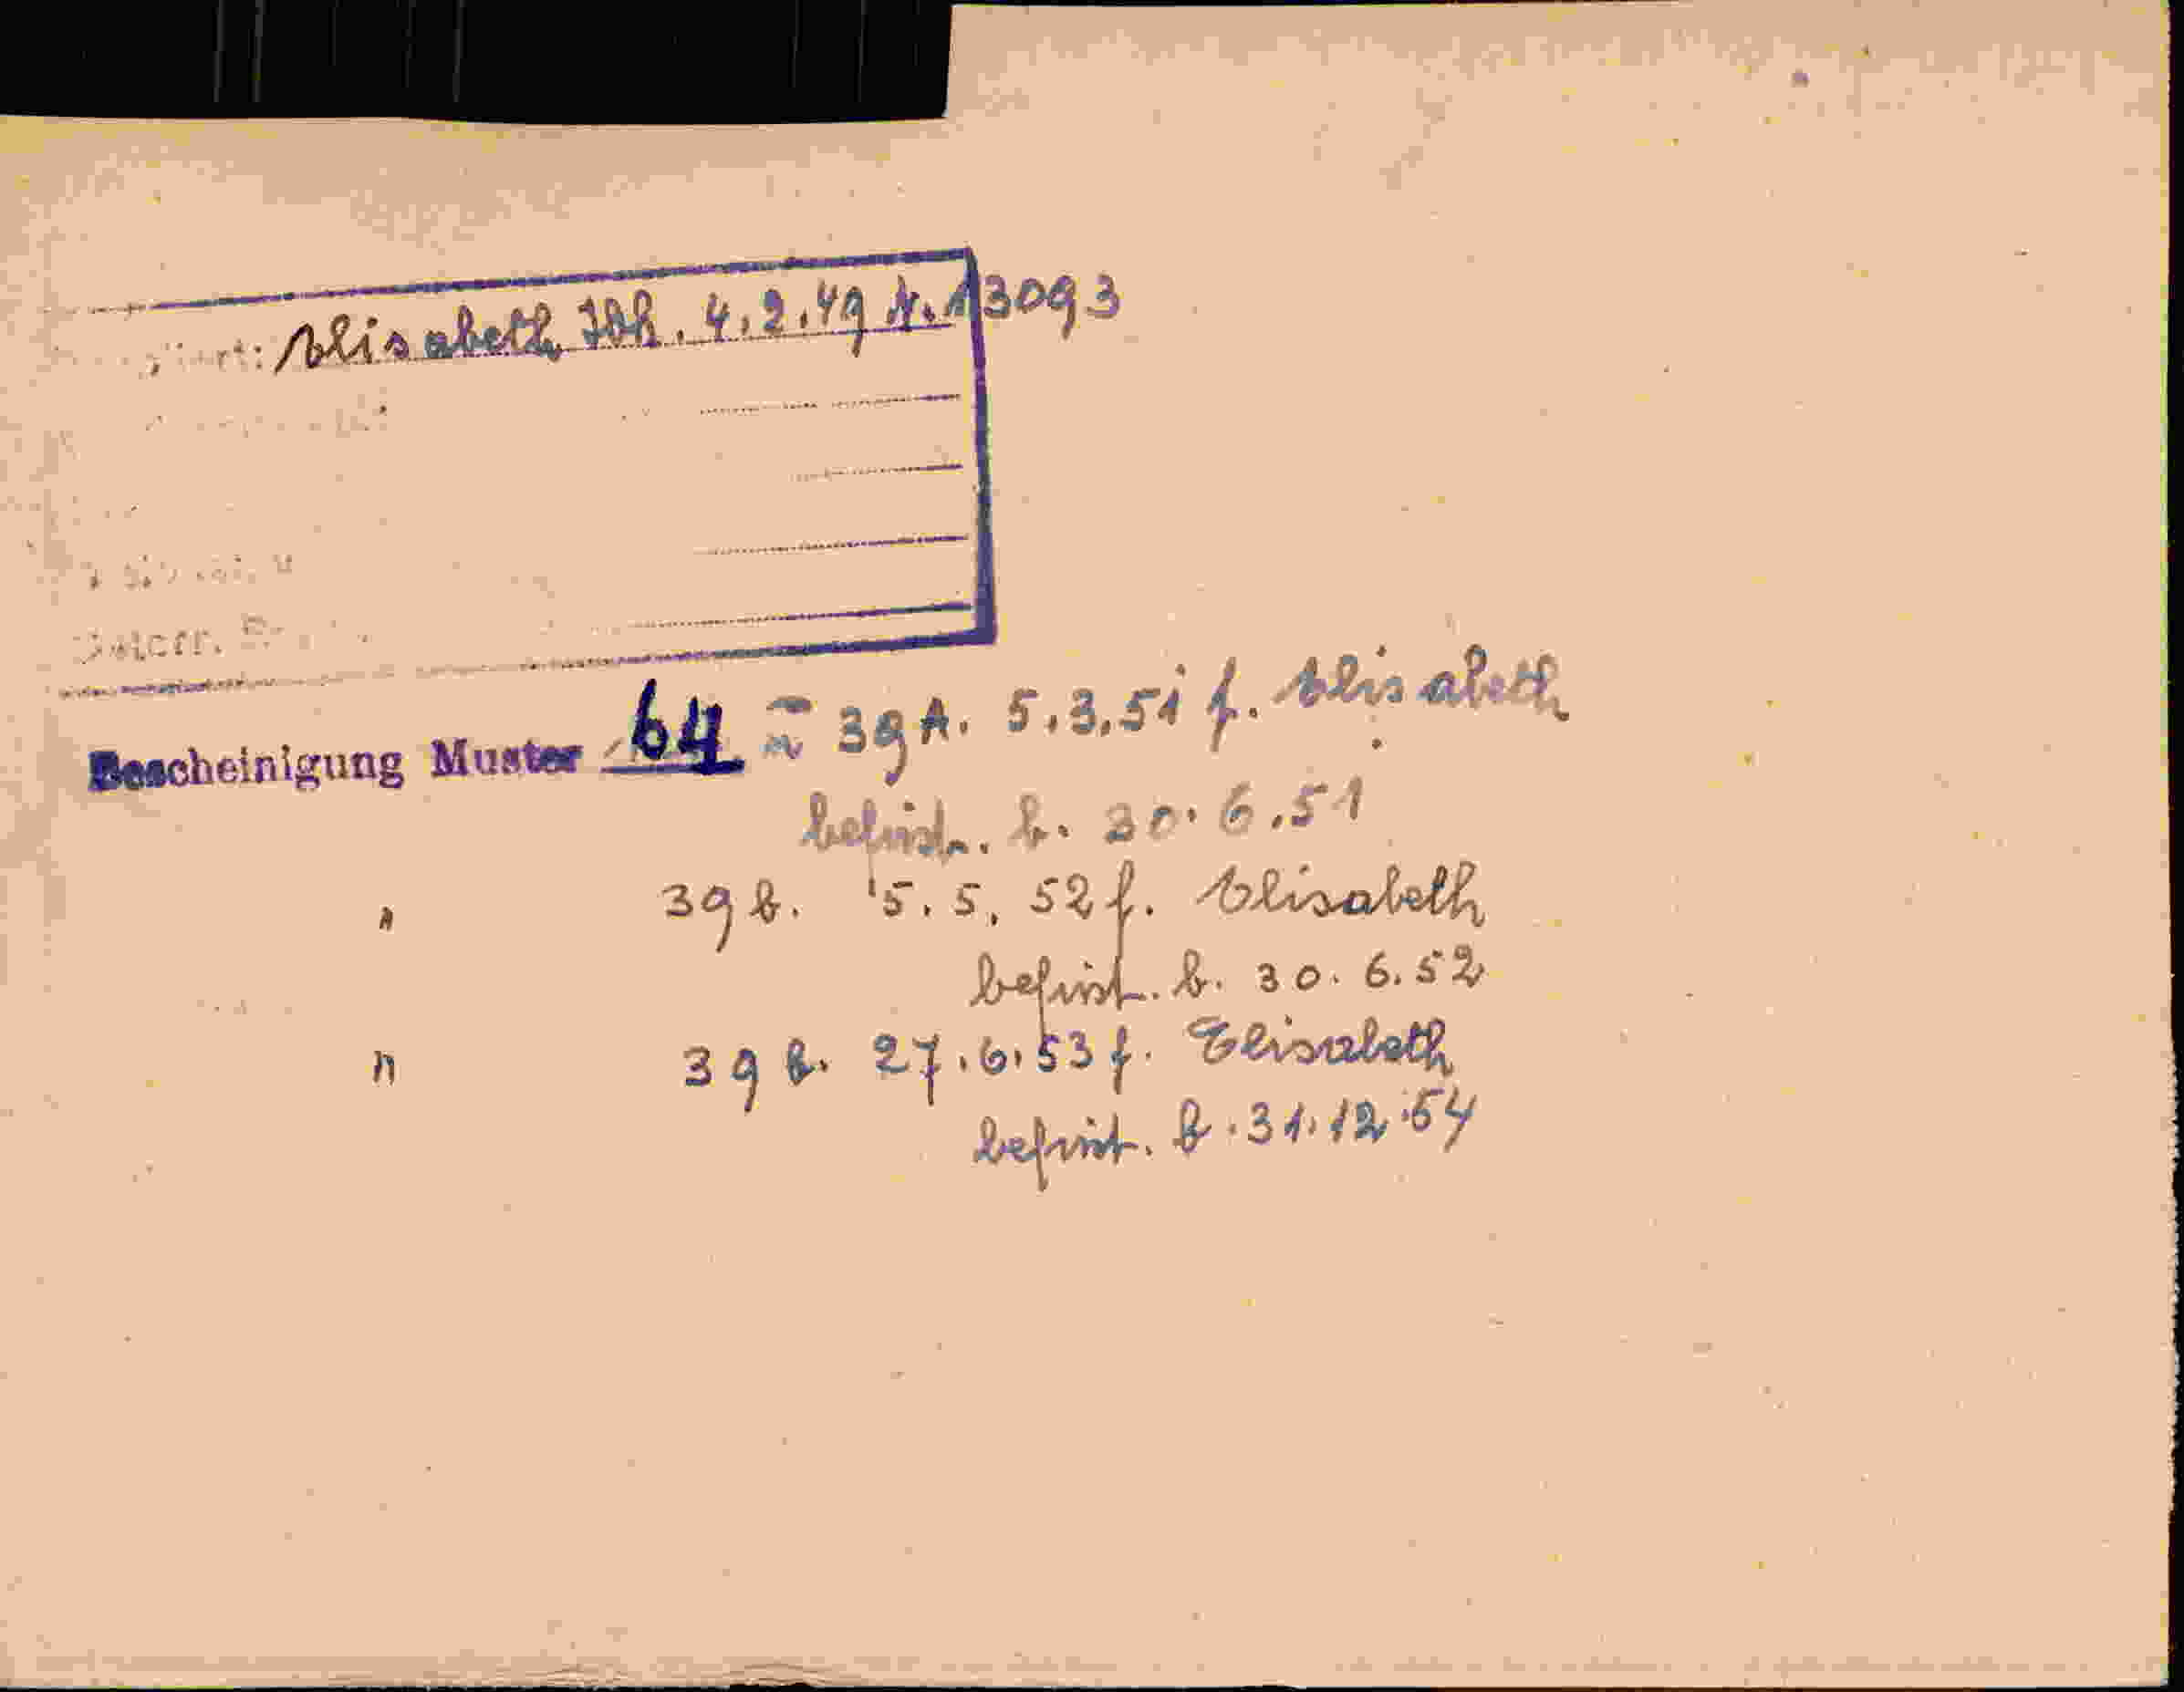 Elisabeth Idk. 4.2.49 N. 13093
Bescheinigung Muster 64
39 A. 5.3.51 f. Elisabeth
befrist. b. 30.6.51
" 39 b. 5.5.52 f. Elisabeth
befrist. b. 30.6.52
" 39 b. 27.6.53 f. Elisabeth
befrist. b. 31.12.54